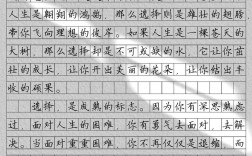 人生是翱翔的海燕，那么选择则是雄壮的翅膀
带你飞向理想的彼岸。如果人生是一棵苍天的
大树，那么选择却是不可或缺的水，它让你茁
壮的成长，让你开出美丽的花朵，让你结出丰
收的硕果。
选择，是成熟的标志。因为你有深思熟虑
过，面对人生的困难，你有勇气去面对，去解
决。当面对重重困难，你不再仅仅是退缩，而